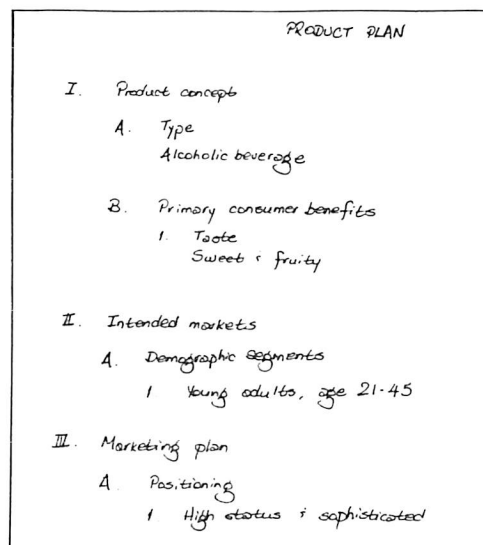 PRODUCT PLAN
I. Product concept
A. Type
Alcoholic beverage
B. Primary consumer benefits
1. Taste
Sweet & fruity
II. Intended markets
A. Demographic segments
1 Young adults, age 21-45
III. Marketing plan
A. Positioning
1 High status & sophisticated